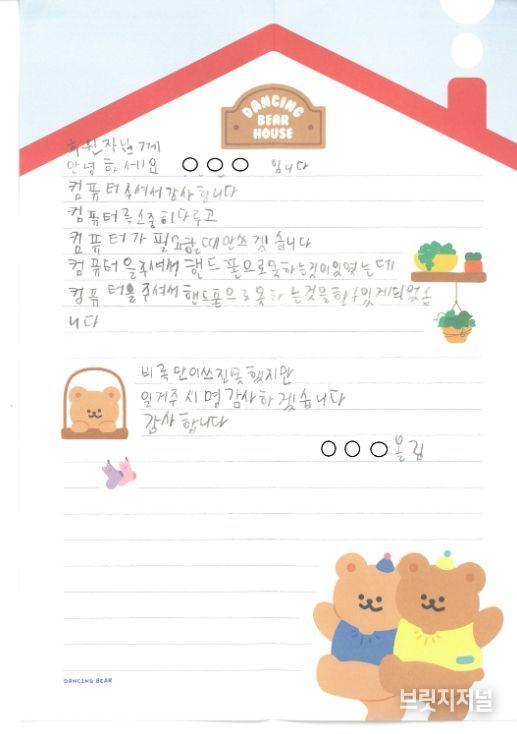 DANCING
BEAR
HOUSE
후원자님께
안녕하세요 ○○○ 입니다
컴퓨터 주셔서 감사합니다
컴퓨터를 소중히 다루고
컴퓨터가 필요할때만 쓰겟습니다
컴퓨터을 주셔서 핸드폰으로 못하는것이 있었는데
컴퓨터을 주셔서 핸드폰으로 못하는것을 할수 있게되었습
니다
비록 만이쓰진못했지만
일거주시명 감사하겠습니다
감사합니다
○○○올림
DANCING BEAR
브릿지저널